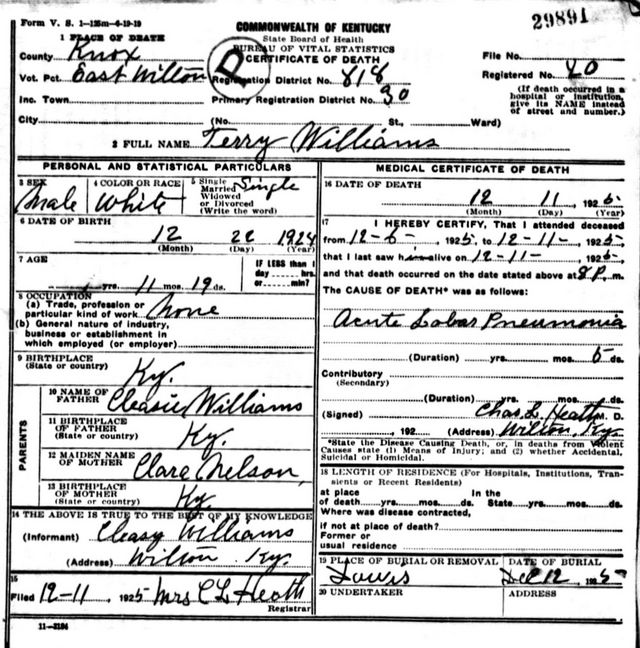 Form V. S. 1-125m-4-19-19
29891
COMMONWEALTH OF KENTUCKY
State Board of Health
BUREAU OF VITAL STATISTICS
CERTIFICATE OF DEATH
1 PLACE OF DEATH
County Knox
File No.
Vot. Pct. East Wilton
Registration District No. 818
Registered No. 20
Inc. Town
Primary Registration District No. 30
(If death occurred in a hospital or institution, give its NAME instead of street and number.)
City (No. St., Ward)
2 FULL NAME Terry Williams
PERSONAL AND STATISTICAL PARTICULARS
3 SEX Male
4 COLOR OR RACE White
5 Single Married Widowed or Divorced (Write the word) Single
6 DATE OF BIRTH
12 22 1924
(Month) (Day) (Year)
7 AGE
yrs. 11 mos. 19 ds.
IF LESS than 1 day hrs. or min?
8 OCCUPATION
(a) Trade, profession or particular kind of work None
(b) General nature of industry, business or establishment in which employed (or employer)
9 BIRTHPLACE
(State or country) Ky.
PARENTS
10 NAME OF FATHER Cleasie Williams
11 BIRTHPLACE OF FATHER (State or country) Ky.
12 MAIDEN NAME OF MOTHER Clara Nelson
13 BIRTHPLACE OF MOTHER (State or country) Ky
14 THE ABOVE IS TRUE TO THE BEST OF MY KNOWLEDGE
(Informant) Cleasy Williams
(Address) Wilton Ky.
15
Filed 12-11, 1925 Mrs C L Heath
Registrar
11-3184
MEDICAL CERTIFICATE OF DEATH
16 DATE OF DEATH
12 11, 1925
(Month) (Day) (Year)
17 I HEREBY CERTIFY, That I attended deceased
from 12-6-, 1925, to 12-11-, 1925,
that I last saw him alive on 12-11-, 1925,
and that death occurred on the date stated above at 8 P. m.
The CAUSE OF DEATH* was as follows:
Acute Lobar Pneumonia
(Duration) yrs. mos. 5 ds.
Contributory
(Secondary)
(Duration) yrs. mos. ds.
(Signed) Chas. L. Heath M. D.
, 192 (Address) Wilton, Ky.
*State the Disease Causing Death, or, in deaths from Violent Causes state (1) Means of Injury; and (2) whether Accidental, Suicidal or Homicidal.
18 LENGTH OF RESIDENCE (For Hospitals, Institutions, Transients or Recent Residents)
at place of death yrs. mos. ds. In the State yrs. mos. ds.
Where was disease contracted,
if not at place of death?
Former or
usual residence
19 PLACE OF BURIAL OR REMOVAL
DATE OF BURIAL
Dec 12, 1925
20 UNDERTAKER
ADDRESS